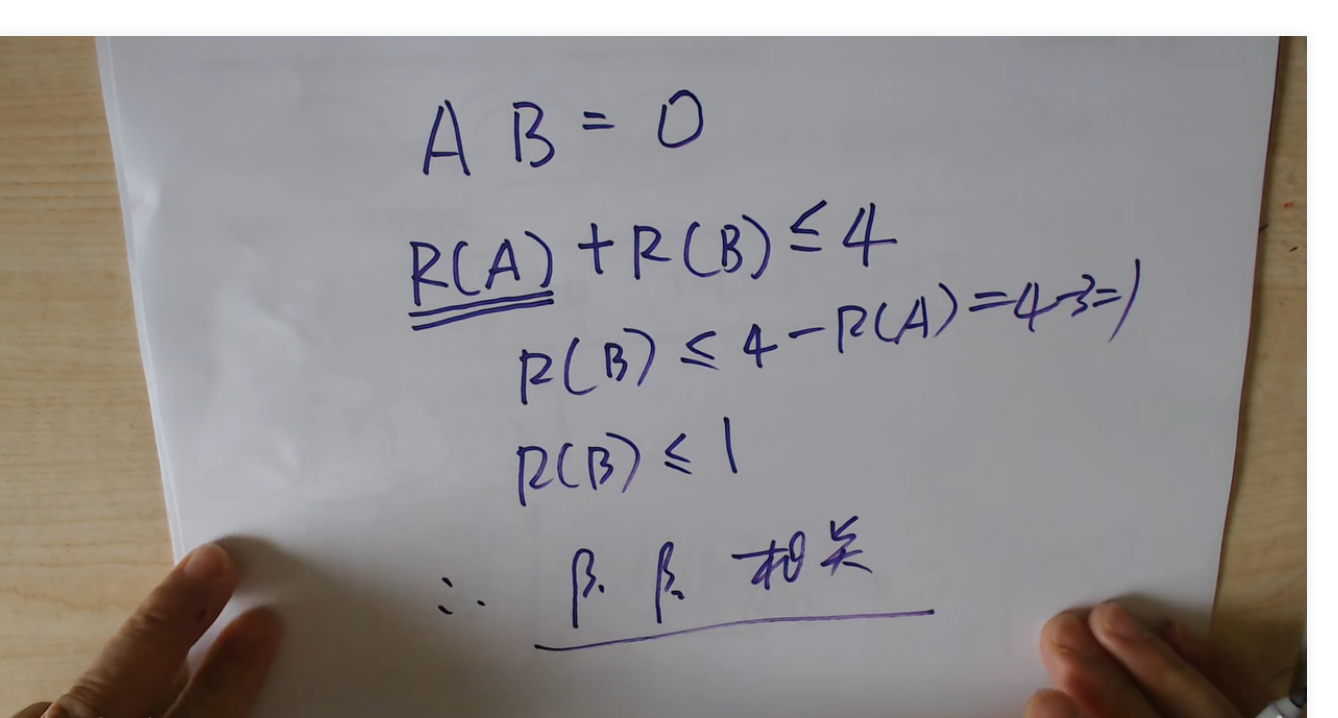 A B = 0
R(A) + R(B) ≤ 4
R(B) ≤ 4 - R(A) = 4-3=1
R(B) ≤ 1
∴ β₁ β₂ 相关